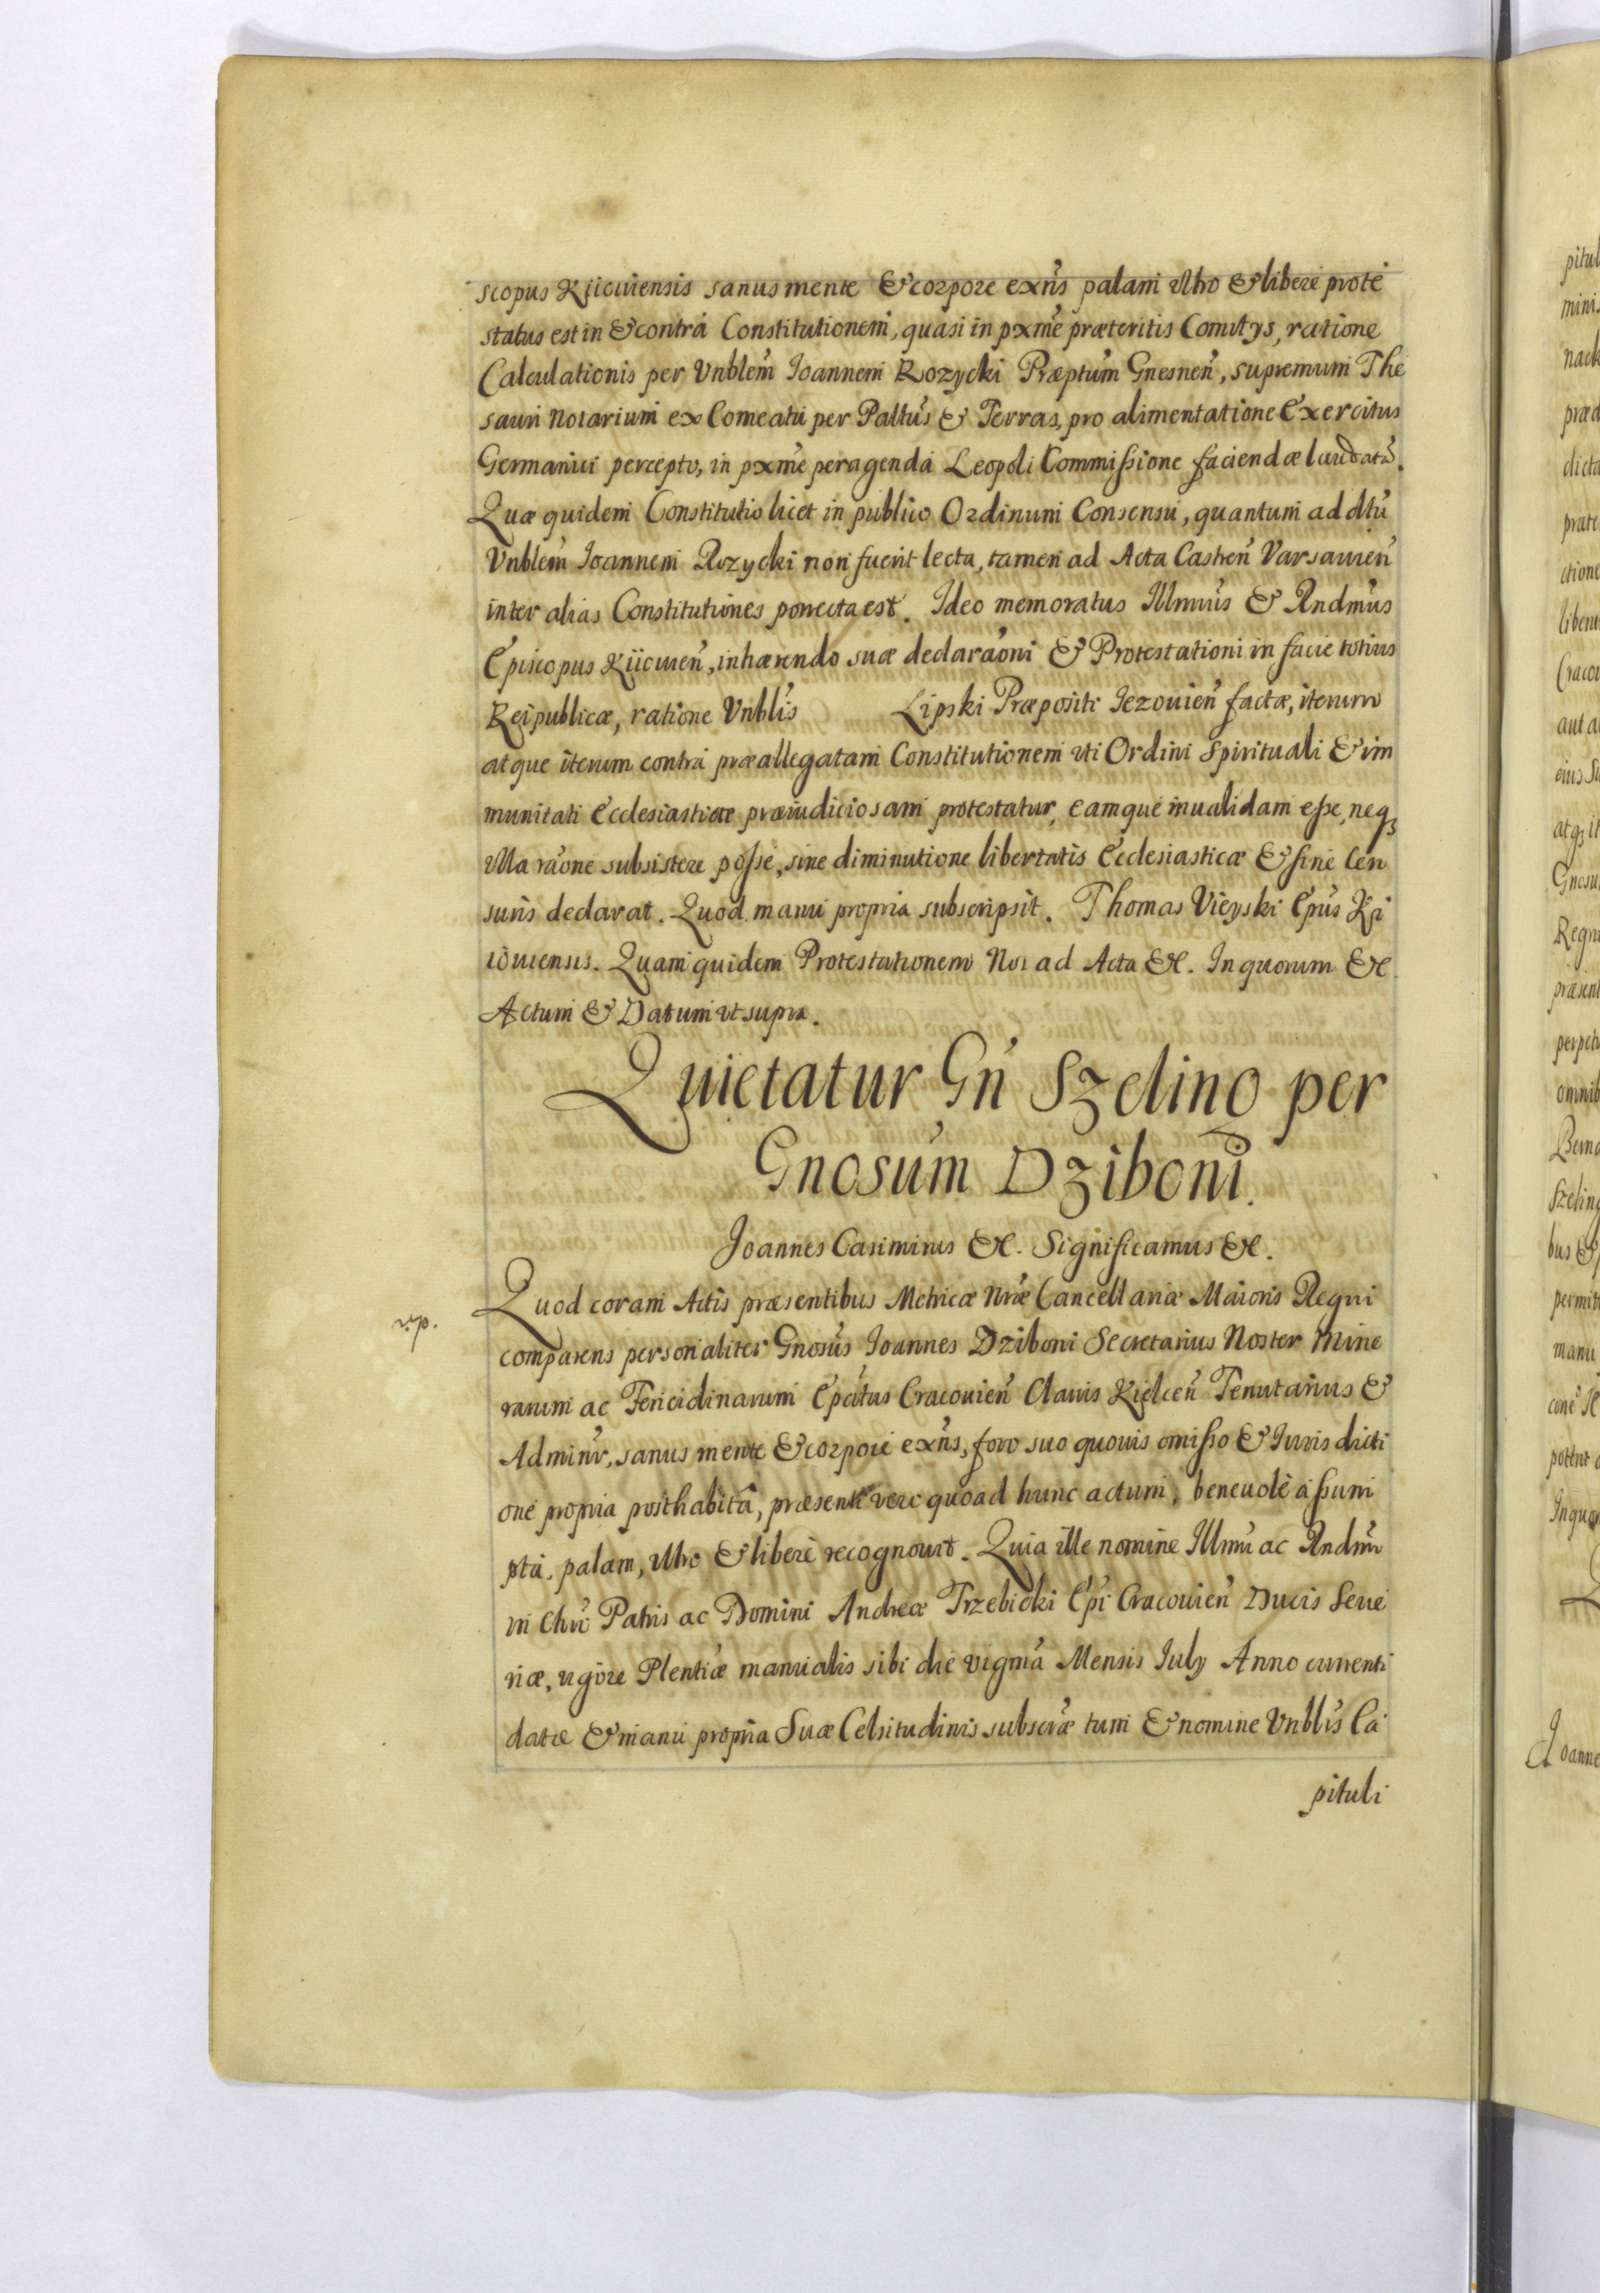 scopus Kiiouiensis sanus mente & corpore exñs palam vltro & libere prote
status est in & contra Constitutionem, quasi in pxme præteritis Comitys, ratione
Calculationis per Vnblem Ioannem Rozycki Præptum Gnesnen, supremum The
sauri Notarium ex Comeatu per Pallus & Terras, pro alimentatione Exercitus
Germanici percepto, in pxme peragenda Leopoli Commissione faciendæ laudatã.
Quæ quidem Constitutio licet in publico Ordinum Consensu, quantum ad dtu
Vnblem Ioannem Rozycki non fuerit lecta, tamen ad Acta Castren Varsauien
inter alias Constitutiones porrecta est. Ideo memoratus Illmus & Rndmus
Episcopus Kiiouien, inhærendo suæ declaraoni & Protestationi in facie totius
Reipublicæ, ratione Vnblis Lipski Præpositi Iezouien factæ, iterum
atque iterum contra præallegatam Constitutionem vti Ordini Spirituali & im
munitati Ecclesiasticæ præiudiciosam protestatur, eamque inualidam esse, neq
vlla raone subsistere posse, sine diminutione libertatis Ecclesiasticæ & sine Cen
suris declarat. Quod manu propria subscripsit. Thomas Vieyski Epus Ki
iouiensis. Quam quidem Protestationem Nos ad Acta &c. In quorum &c.
Actum & Datum vt supra.
Quietatur Gn Szeling per
Gnosum Dziboni.
Joannes Casimirus &c. Significamus &c.
Quod coram Actis præsentibus Metricæ Nræ Cancellariæ Maioris Regni
comparens personaliter Gnosus Ioannes Dziboni Secretarius Noster Mine
rarum ac Fericidinarum Epatus Cracouien Clauis Kielcen Tenutarius &
Adminr, sanus mente & corpore exñs, foro suo quouis omisso & Iuris dicti
one propria posthabitâ, præsenti vero quoad hunc actum, beneuole assum
pta, palam, vltro & libere recognouit. Quia ille nomine Illmi ac Rndmi
in Chro Patris ac Domini Andreæ Trzebicki Epi Cracouien Ducis Seue
riæ, vigore Plentiæ manualis sibi die vigma Mensis Iuly Anno currenti
datæ & manu propria Suæ Celsitudinis subscræ tum & nomine Vnblis Ca
pituli